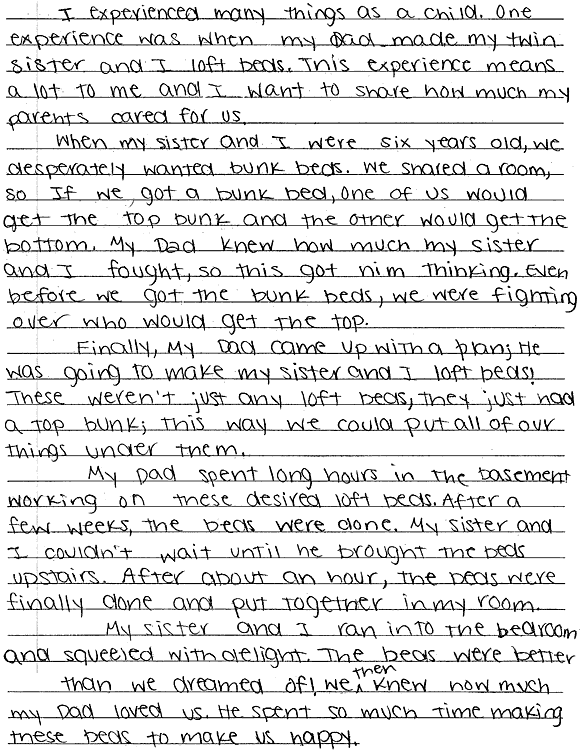 I experienced many things as a child. One
experience was when my Dad made my twin
sister and I loft beds. This experience means
a lot to me and I want to share how much my
parents cared for us.
When my sister and I were six years old, we
desperately wanted bunk beds. We shared a room,
so If we got a bunk bed, one of us would
get the top bunk and the other would get the
bottom. My Dad knew how much my sister
and I fought, so this got him thinking. Even
before we got the bunk beds, we were fighting
over who would get the top.
Finally, My Dad came up with a plan; He
was going to make my sister and I loft beds!
These weren't just any loft beds, they just had
a top bunk; this way we could put all of our
things under them.
My Dad spent long hours in the basement
working on these desired loft beds. After a
few weeks, the beds were done. My sister and
I couldn't wait until he brought the beds
upstairs. After about an hour, the beds were
finally done and put together in my room.
My sister and I ran into the bedroom
and squeeled with delight. The beds were better
than we dreamed of! We then knew how much
my Dad loved us. He spent so much time making
these beds to make us happy.